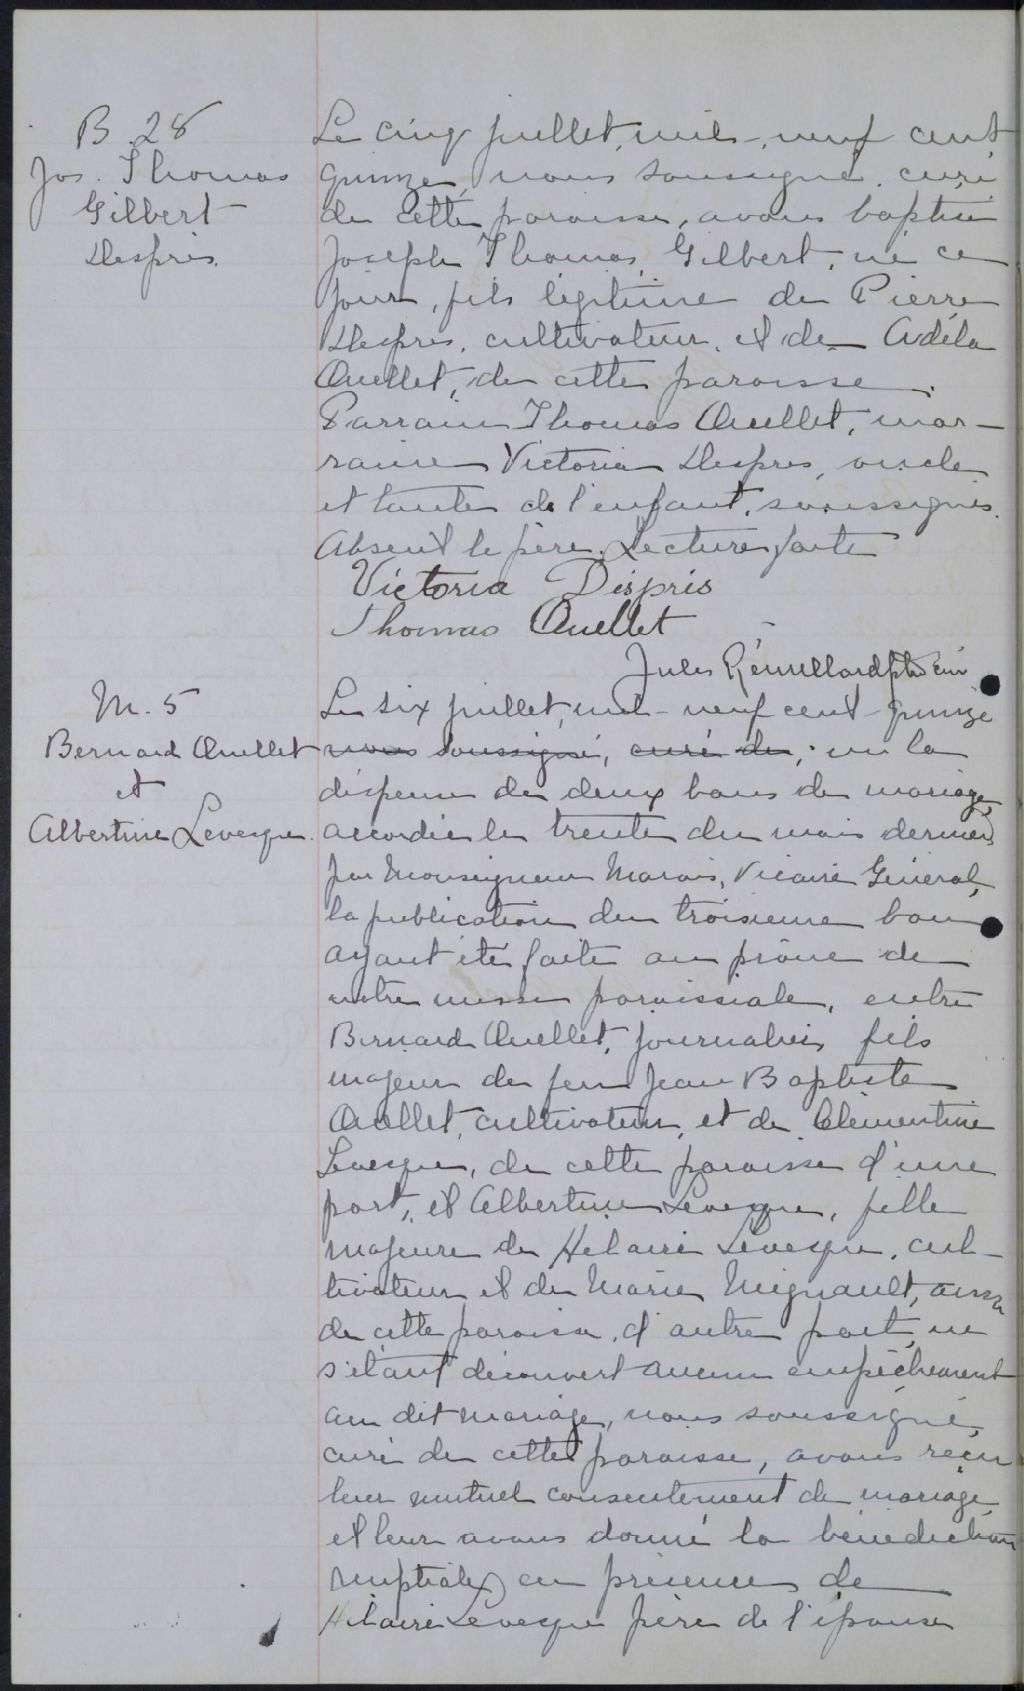 B. 28
Jos. Thomas
Gilbert
Després.
Le cinq juillet, mil-neuf cent
quinze, nous soussigné, curé
de cette paroisse, avons baptisé
Joseph Thomas Gilbert, né ce
jour, fils légitime de Pierre
Després, cultivateur, et de Adéla
Ouellet, de cette paroisse.
Parrain Thomas Ouellet, mar-
raine Victoria Després, oncle
et tante de l'enfant, soussignés.
Absent le père. Lecture faite
Victoria Després
Thomas Ouellet
Jules Rémillard ptre curé
M. 5
Bernard Ouellet
et
Albertine Levesque.
Le six juillet, mil-neuf cent-quinze
nous soussigné, curé de, vu la
dispense de deux bans de mariage,
accordée le trente du mois dernier
par Monseigneur Marois, Vicaire Général,
la publication du troisième ban
ayant été faite au prône de
notre messe paroissiale, entre
Bernard Ouellet, journalier, fils
majeur de feu Jean Baptiste
Ouellet, cultivateur, et de Clémentine
Levesque, de cette paroisse d'une
part, et Albertine Levesque, fille
majeure de Hilaire Levesque, cul-
tivateur et de Marie Mignault, aussi
de cette paroisse, d'autre part, ne
s'étant découvert aucun empêchement
au dit mariage, nous soussigné,
curé de cette paroisse, avons reçu
leur mutuel consentement de mariage
et leur avons donné la bénédiction
nuptiale en présence de
Hilaire Levesque père de l'épouse